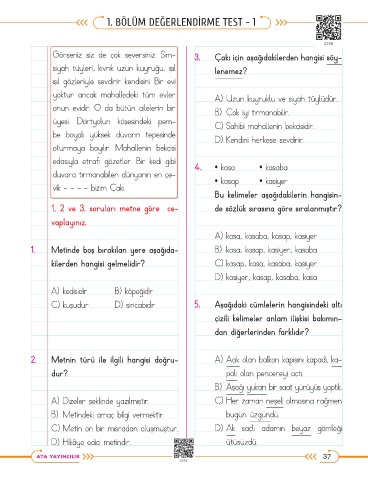 1. BÖLÜM DEĞERLENDİRME TEST - 1
Görseniz siz de çok seversiniz. Sim-
siyah tüyleri, kıvrık uzun kuyruğu, ışıl
ışıl gözleriyle sevdirir kendisini. Bir evi
yoktur ancak mahalledeki tüm evler
onun evidir. O da bütün ailelerin bir
üyesi. Dörtyolun köşesindeki pem-
be boyalı yüksek duvarın tepesinde
oturmaya bayılır. Mahallenin bekçisi
edasıyla etrafı gözetler. Bir kedi gibi
duvara tırmanabilen dünyanın en çe-
vik - - - - bizim Çakı.
1, 2 ve 3. soruları metne göre ce-
vaplayınız.
1. Metinde boş bırakılan yere aşağıda-
kilerden hangisi gelmelidir?
A) kedisidir B) köpeğidir
C) kuşudur D) sincabıdır
2. Metnin türü ile ilgili hangisi doğru-
dur?
A) Dizeler şeklinde yazılmıştır.
B) Metindeki amaç bilgi vermektir.
C) Metin on bir mısradan oluşmuştur.
D) Hikâye edici metindir.
3. Çakı için aşağıdakilerden hangisi söy-
lenemez?
A) Uzun kuyruklu ve siyah tüylüdür.
B) Çok iyi tırmanabilir.
C) Sahibi mahallenin bekçisidir.
D) Kendini herkese sevdirir.
4. • kasa • kasaba
• kasap • kasiyer
Bu kelimeler aşağıdakilerin hangisin-
de sözlük sırasına göre sıralanmıştır?
A) kasa, kasaba, kasap, kasiyer
B) kasa, kasap, kasiyer, kasaba
C) kasap, kasa, kasaba, kasiyer
D) kasiyer, kasap, kasaba, kasa
5. Aşağıdaki cümlelerin hangisindeki altı
çizili kelimeler anlam ilişkisi bakımın-
dan diğerlerinden farklıdır?
A) Açık olan balkon kapısını kapadı, ka-
palı olan pencereyi açtı.
B) Aşağı yukarı bir saat yürüyüş yaptık.
C) Her zaman neşeli olmasına rağmen
bugün üzgündü.
D) Ak saçlı adamın beyaz gömleği
ütüsüzdü.
ATA YAYINCILIK
37